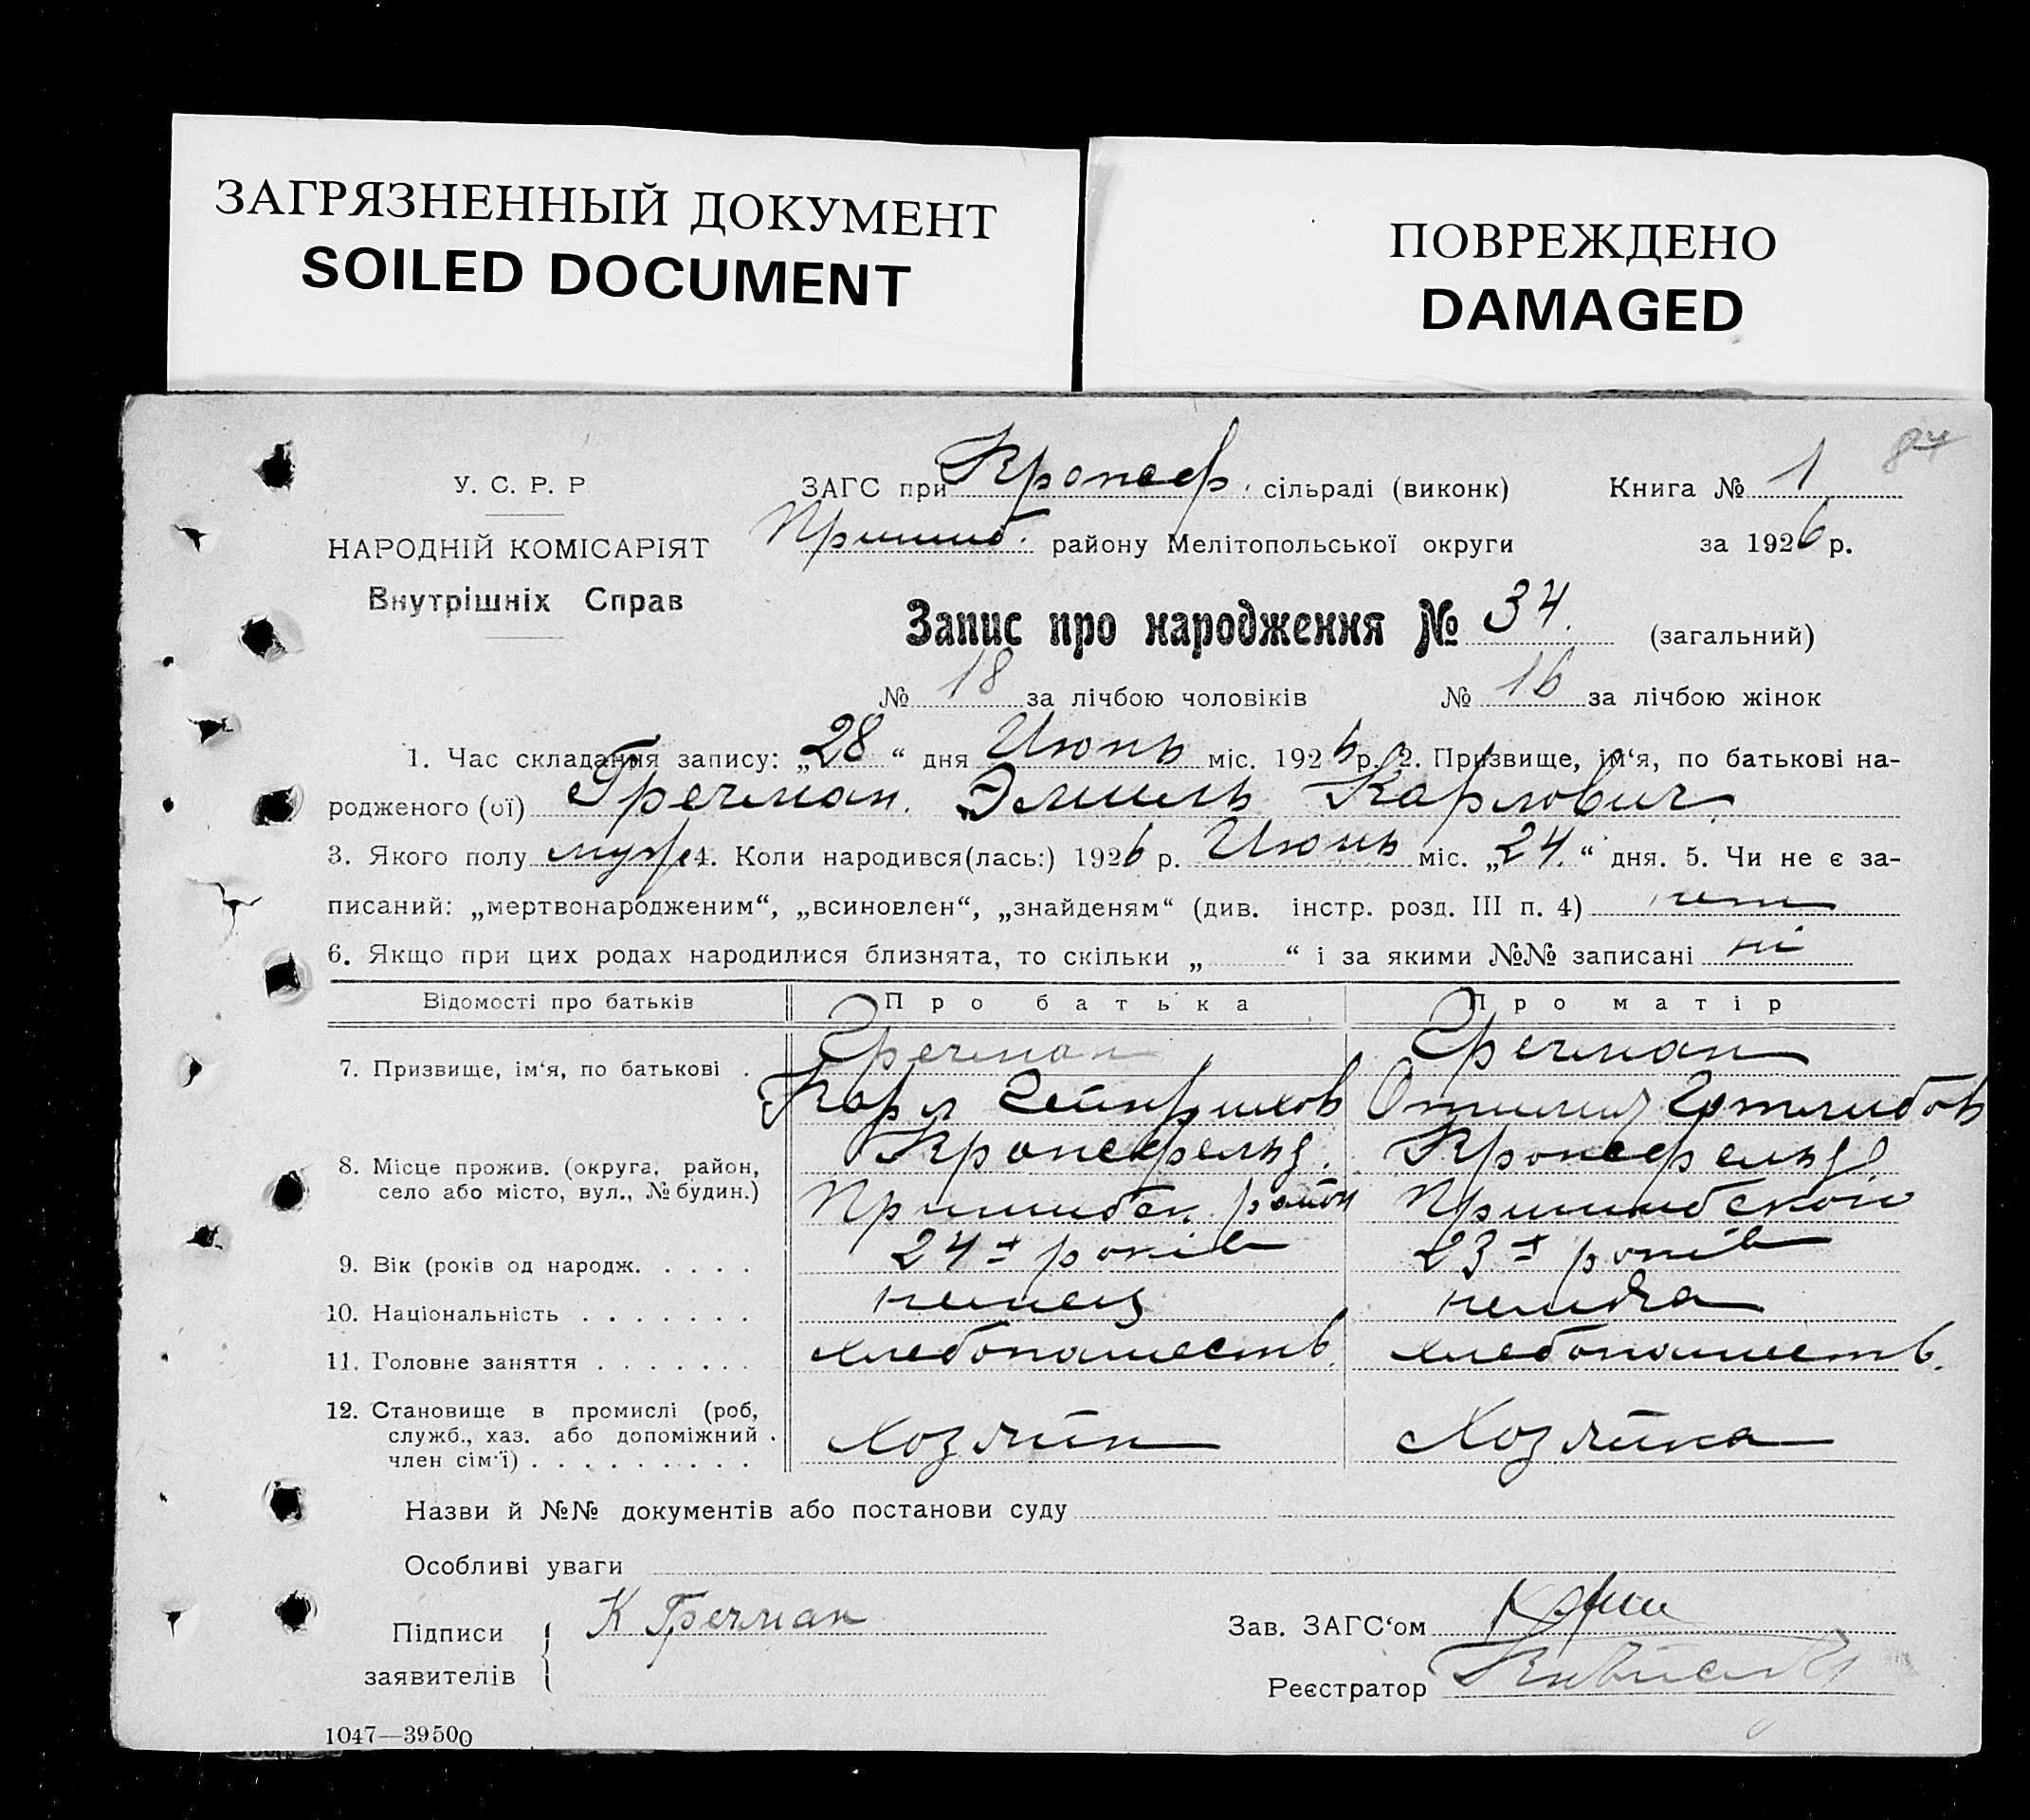 ЗАГРЯЗНЕННЫЙ ДОКУМЕНТ
SOILED DOCUMENT
ПОВРЕЖДЕНО
DAMAGED
84
У. С. Р. Р
НАРОДНІЙ КОМІСАРІЯТ
Внутрішніх Справ
ЗАГС при Кронсф. сільраді (виконк) Книга № 1
Пришиб. району Мелітопольської округи за 1926 р.
Запис про народження № 34. (загальний)
№ 18 за лічбою чоловіків № 16 за лічбою жінок
1. Час складання запису: „28“ дня Июнь міс. 1926 р. 2. Призвище, ім‘я, по батькові на-
родженого (ої) Гречман. Эмиль Карлович.
3. Якого полу муж 4. Коли народився(лась:) 1926 р. Июнь міс. „24.“ дня. 5. Чи не є за-
писаний: „мертвонародженим“, „всиновлен“, „знайденям“ (див. інстр. розд. III п. 4) нет
6. Якщо при цих родах народилися близнята, то скільки „ “ і за якими №№ записані ні
Відомості про батьків Про батька Про матір
7. Призвище, ім‘я, по батькові . Гречман Гречман
Карл Гейнрихов Отилия Готлибов
8. Місце прожив. (округа, район, село або місто, вул., № будин.) Кронсфельд. Кронсфельд
Пришибск. район Пришибского
9. Вік (років од народж. . . . . 24 років 23 років
10. Національність . . . . . . . немец немка
11. Головне заняття . . . . . . . хлебопашеств. хлебопашеств.
12. Становище в промислі (роб,
служб., хаз. або допоміжний .
член сім‘ї) . . . . . . . . . Хозяин Хозяйка
Назви й №№ документів або постанови суду
Особливі уваги
Підписи заявителів { К Гречман
Зав. ЗАГС‘ом
Реєстратор
1047—39500